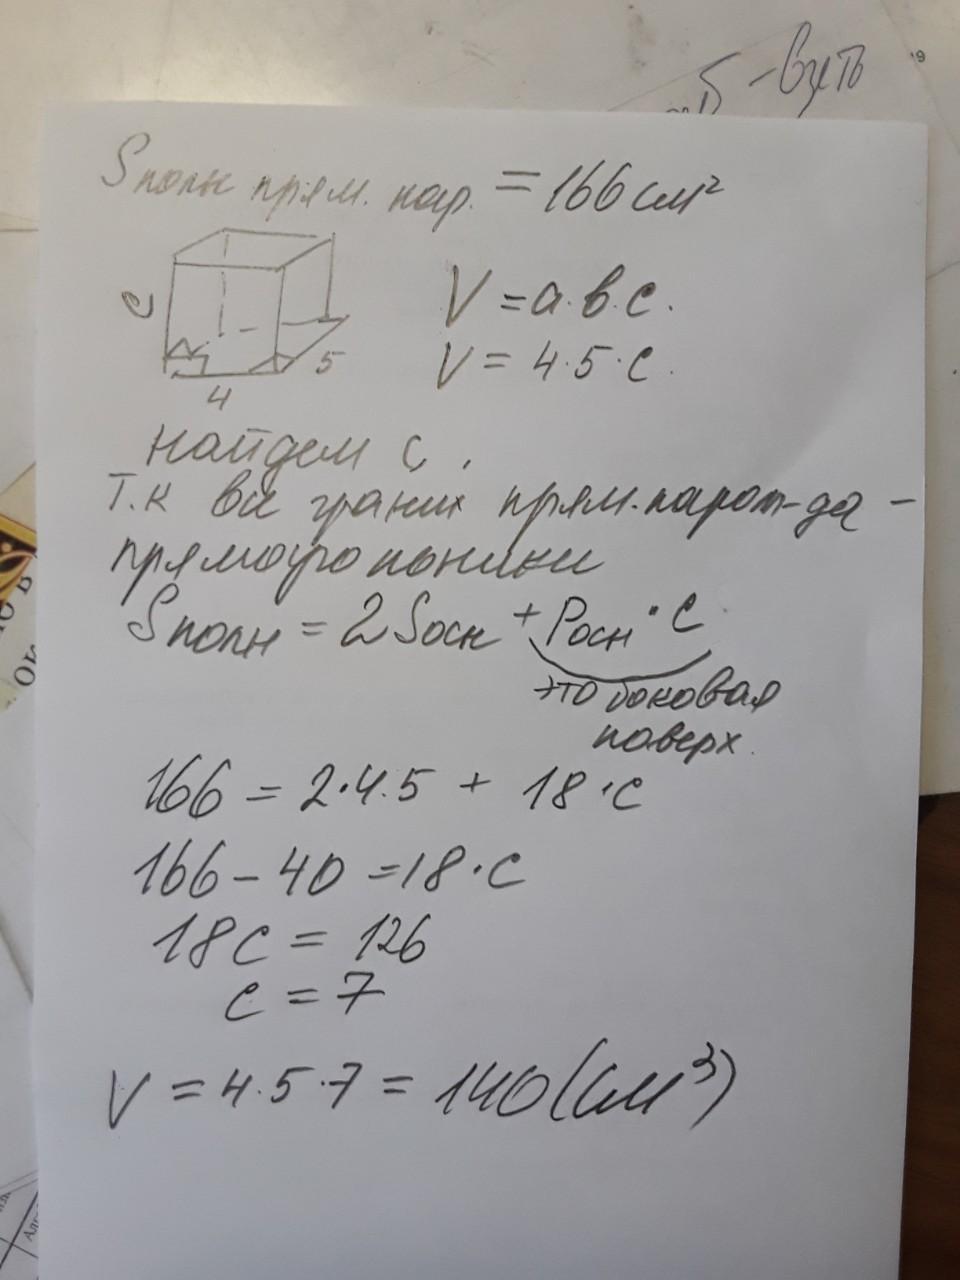 - взять
19
Sполн прям. пар. = 166 см²
c
5
4
V = a·в·c.
V = 4·5·c.
найдем c,
Т.к все грани прям.парал-да -
прямоугольники
Sполн = 2Sосн + Pосн · c
это боковая
поверх.
166 = 2·4·5 + 18·c
166 - 40 = 18·c
18c = 126
c = 7
V = 4·5·7 = 140(см³)